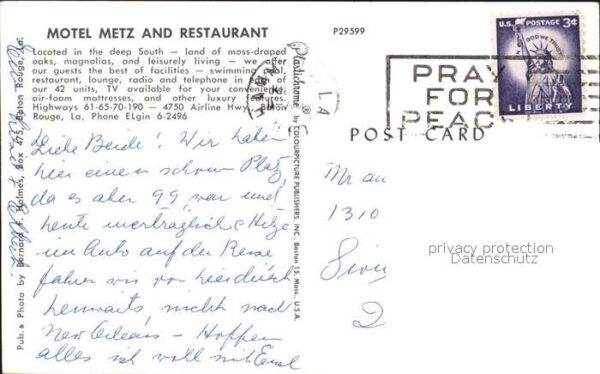 MOTEL METZ AND RESTAURANT
Located in the deep South — land of moss-draped
oaks, magnolias, and leisurely living — we offer
our guests the best of facilities — swimming pool,
restaurant, lounge, radio and telephone in each of
our 42 units, TV available for your convenience,
air-foam mattresses, and other luxury features.
Highways 61-65-70-190 — 4750 Airline Hwy., Baton
Rouge, La. Phone ELgin 6-2496
Pub. & Photo by Bernard F. Holmes, Box 475, Baton Rouge, La.
Liebe Beide! Wir haben
hier einen schönen Platz,
da es aber 99, war und
heute unerträgliche Hitze
im Auto auf der Reise
fahren wir von hier
heimwärts, nicht nach
New Orleans — Hoffen
alles ist voll mit
Plastichrome ® by COLOURPICTURE PUBLISHERS, INC. Boston 15, Mass., U.S.A.
P29599
LA
U.S. POSTAGE 3¢
IN GOD WE TRUST
LIBERTY
PRAY
FOR
PEACE
POST CARD
Mr an
1310
privacy protection
Datenschutz
2